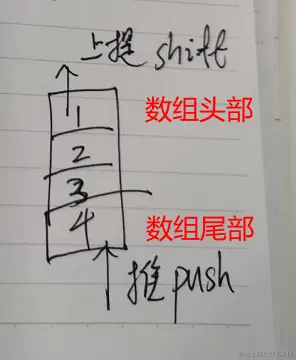 上提 shift
1
数组头部
2
3
4
数组尾部
推 push